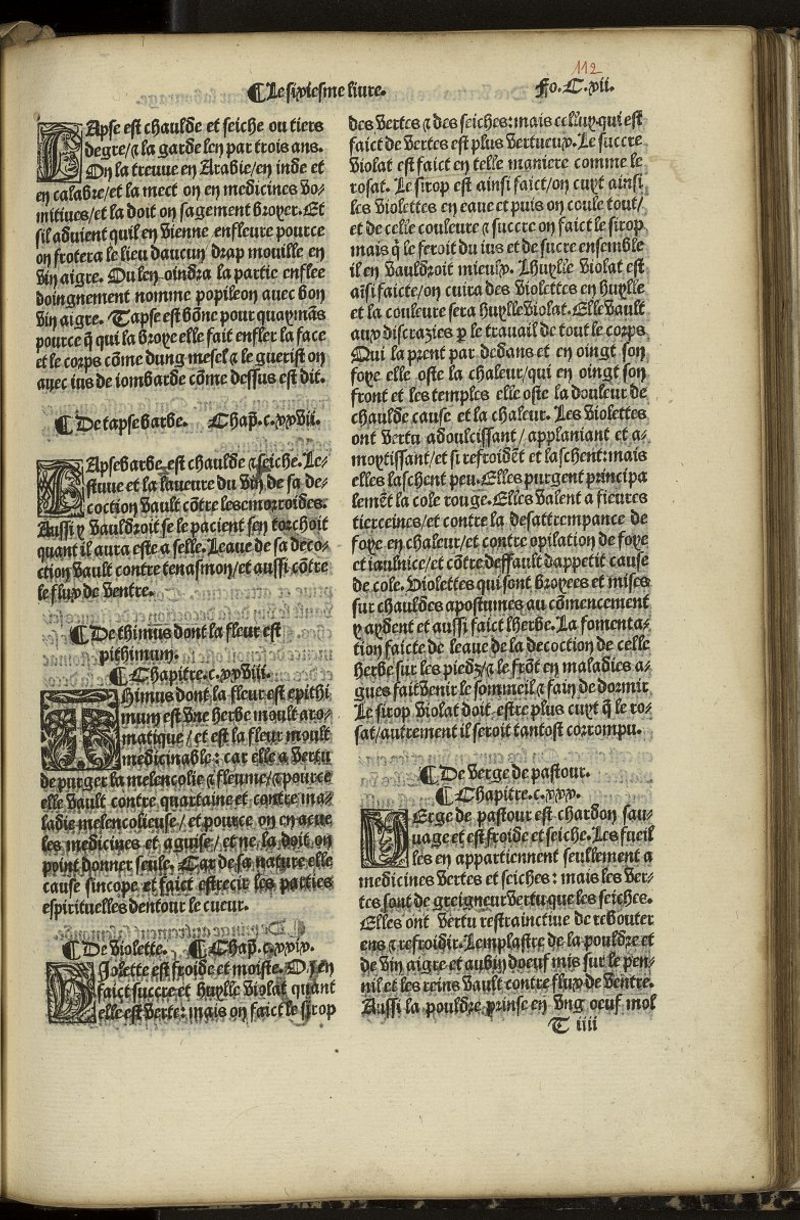 112
¶ Le sixiesme liure.
Fo. C. xii.
TApse est chaulde et seiche ou tiers
degre/⁊ la garde len par trois ans.
On la treuue en Arabie/en inde et
en calabre/et la mect on en medicines vo⸗
mitiues/et la doit on sagement broyer. Et
sil aduient quil en vienne enfleure pource
on frotera le lieu daucun drap mouille en
vin aigre. Ou len oindra la partie enflee
doingnement nomme popileon auec bon
vin aigre. Tapse est bōne pour quaymās
pource q̄ qui la broye elle fait enfler la face
et le corps cōme dung mesel ⁊ le guerist on
auec ius de iombarde cōme dessus est dit.
¶ De tapsebarbe. Chap̄. c. xxvii.
TApsebarbe est chaulde ⁊ seiche. Le⸗
stuue et la laueure du vin de sa de⸗
coction vault cōtre les emorroides.
Aussi y vauldroit se le pacient sen torchoit
quant il aura este a selle. Leaue de sa deco⸗
ction vault contre tenasmon/et aussi cōtre
le flux de ventre.
¶ De thimus dont la fleur est
pithimum.
¶ Chapitre. c. xxviii.
THimus dont la fleur est epithi
mum est vne herbe moult aro⸗
matique/et est la fleur moult
medicinable: car elle a vertu
de purger la melencolie ⁊ fleume/⁊ pource
elle vault contre quartaine et contre ma⸗
ladie melencolieuse/et pource on en acue
les medicines et aguise/et ne la doit on
point donner seule. Car de sa nature elle
cause sincope et faict estrecir les parties
espirituelles dentour le cueur.
¶ De violette. ¶ Chap̄. c. xxix.
VIolette est froide et moiste. On en
faict succre et huylle violat quant
elle est verte: mais on faict le sirop
des vertes ⁊ des seiches: mais celluy qui est
faict de vertes est plus vertueux. Le succre
violat est faict en telle maniere comme le
rosat. Le sirop est ainsi faict/on cuyt ainsi
les violettes en eaue et puis on coule tout/
et de celle couleure ⁊ succre on faict le sirop
mais q̄ le feroit du ius et de sucre ensemble
il en vauldroit mieulx. Lhuylle violat est
aīsi faicte/on cuira des violettes en huylle
et la couleure sera huylle violat. Elle vault
aux discrazies p̱ le trauail de tout le corps.
Qui la prent par dedans et en oingt son
foye elle oste la chaleur/qui en oingt son
front et les temples elle oste la douleur de
chaulde cause et la chaleur. Les violettes
ont vertu adoulcissant/applaniant et a⸗
moytissant/et si refroidēt et laschent: mais
elles laschent peu. Elles purgent principa
lemēt la cole rouge. Elles valent a fieures
tierceines/et contre la desattrempance de
foye en chaleur/et contre opilation de foye
et iaulnice/et cōtre deffault dappetit cause
de cole. Violettes qui sont broyees et mises
sur chauldes apostumes au cōmencement
y aydent et aussi faict lherbe. La fomenta⸗
tion faicte de leaue de la decoction de celle
herbe sur les piedz/⁊ le frōt en maladies a⸗
gues fait venir le sommeil ⁊ fain de dormir
Le sirop violat doit estre plus cuyt q̄ le ro⸗
sat/autrement il seroit tantost corrompu.
¶ De verge de pastour.
¶ Chapitre. c. xxx.
VErge de pastour est chardon sau⸗
uage et est froide et seiche. Les fueil
les en appartiennent seullement a
medicines vertes et seiches: mais les ver⸗
tes sont de greigneur vertu que les seiches.
Elles ont vertu restrainctiue de rebouter
ens ⁊ refroidir. Lemplastre de la pouldre et
de vin aigre et aubin doeuf mis sur le pen⸗
nil et les reins vault contre flux de ventre.
Aussi la pouldre prinse en vng oeuf mol
T iiii